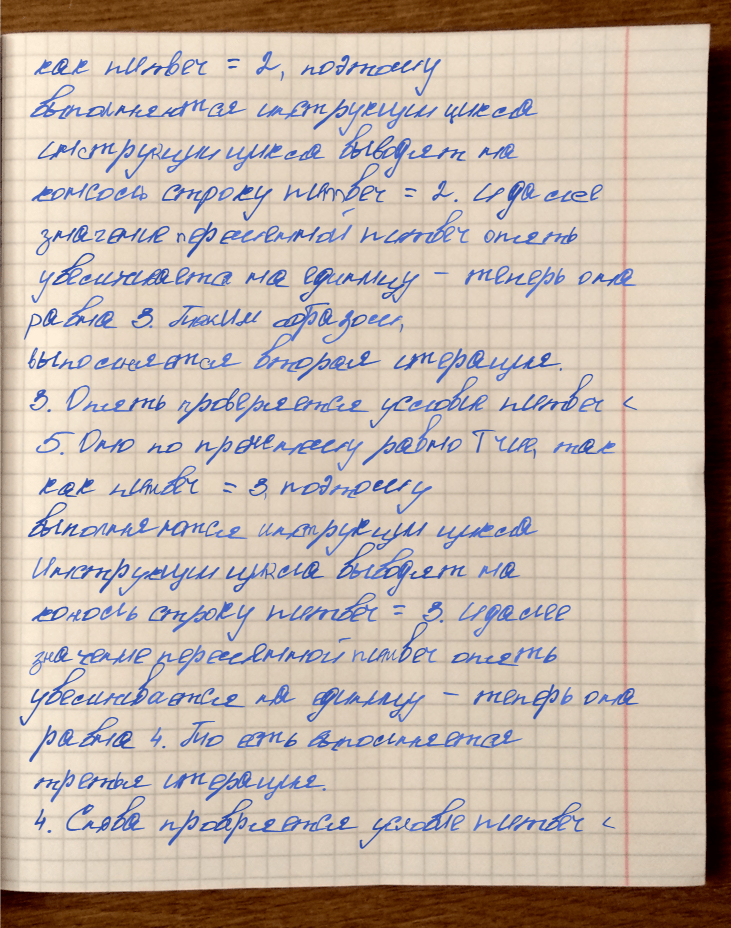 как number = 2, поэтому
выполняются инструкции цикла
инструкции цикла выводят на
консоль строку number = 2. И далее
значение переменной number опять
увеличивается на единицу – теперь она
равна 3. Таким образом,
выполняется вторая итерация.
3. Опять проверяется условие number <
5. Оно по прежнему равно True, так
как number = 3, поэтому
выполняются инструкции цикла
Инструкции цикла выводят на
консоль строку number = 3. И далее
значение переменной number опять
увеличивается на единицу – теперь она
равна 4. То есть выполняется
третья итерация.
4. Снова проверяется условие number <